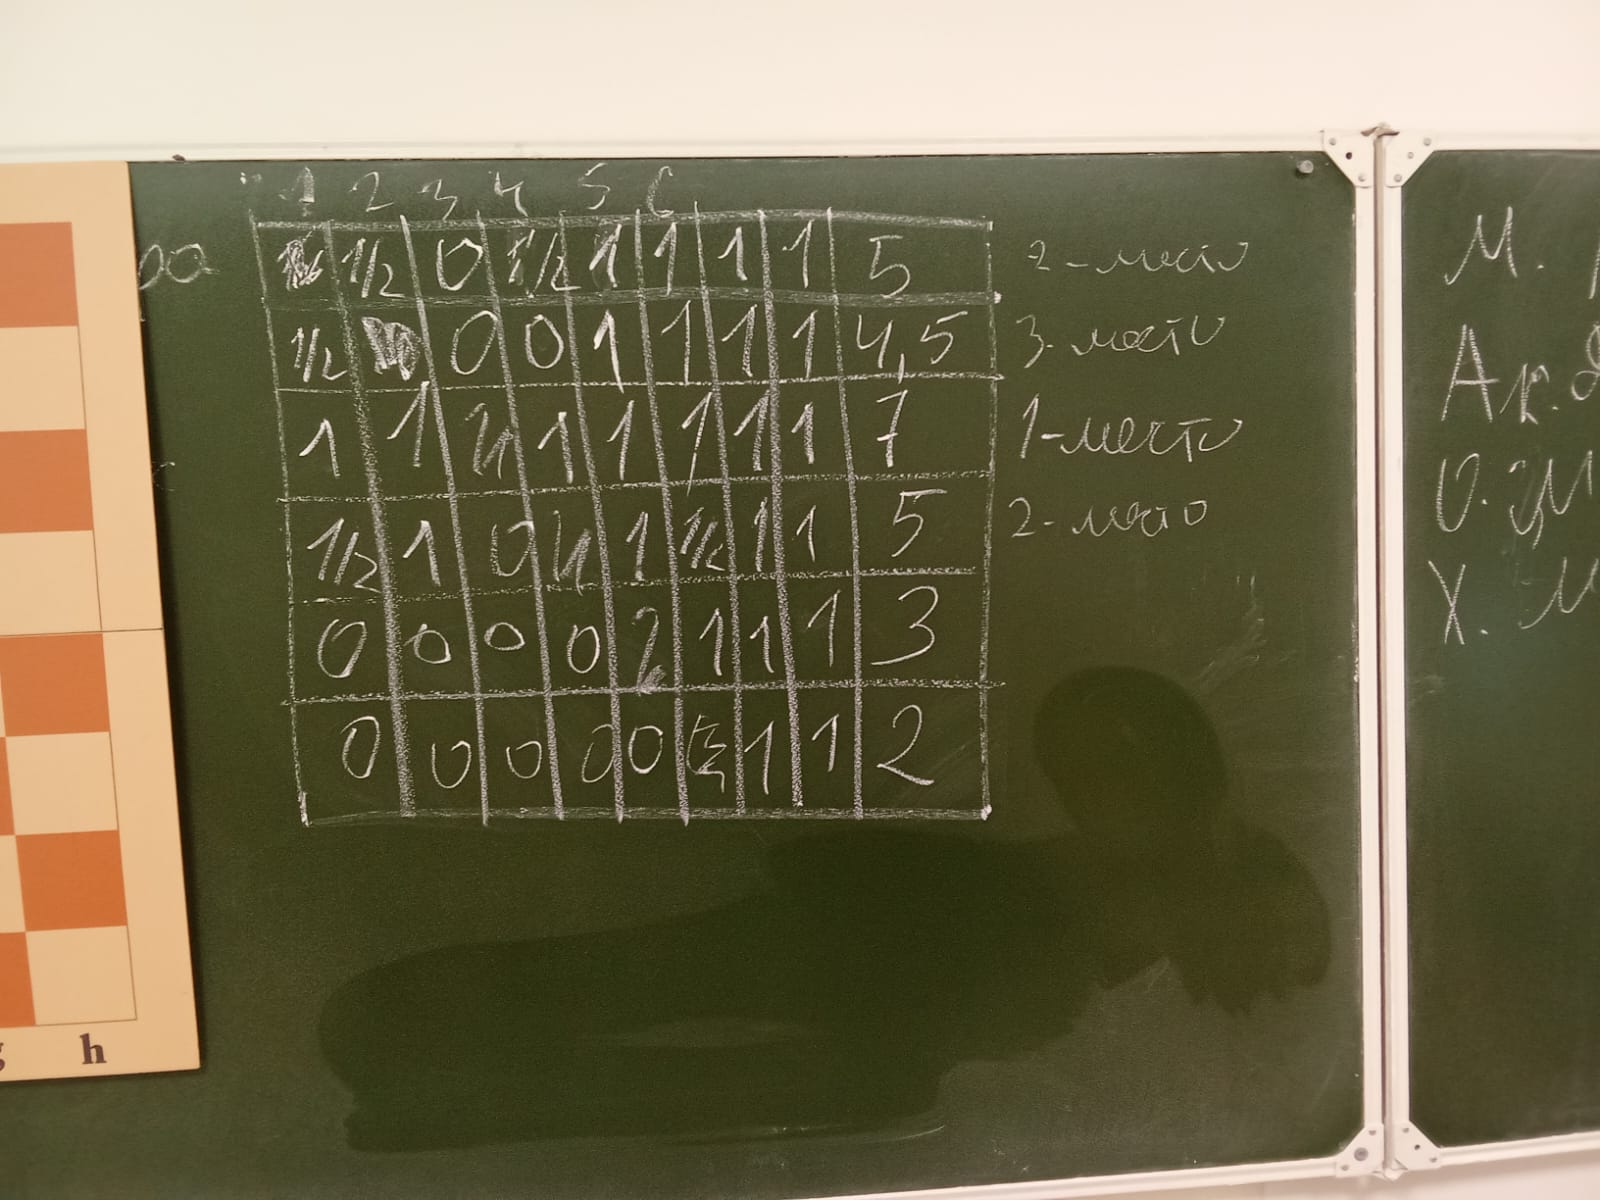 1 2 3 4 5 6
1/2 0 1/2 1 1 1 1 5 2-место
1/2 0 0 1 1 1 1 4,5 3-место
1 1 1 1 1 1 1 7 1-место
1/2 1 0 1 1/2 1 1 5 2-место
0 0 0 0 1 1 1 3
0 0 0 0 0 1 1 2
М.
А
О.
Х. М
h